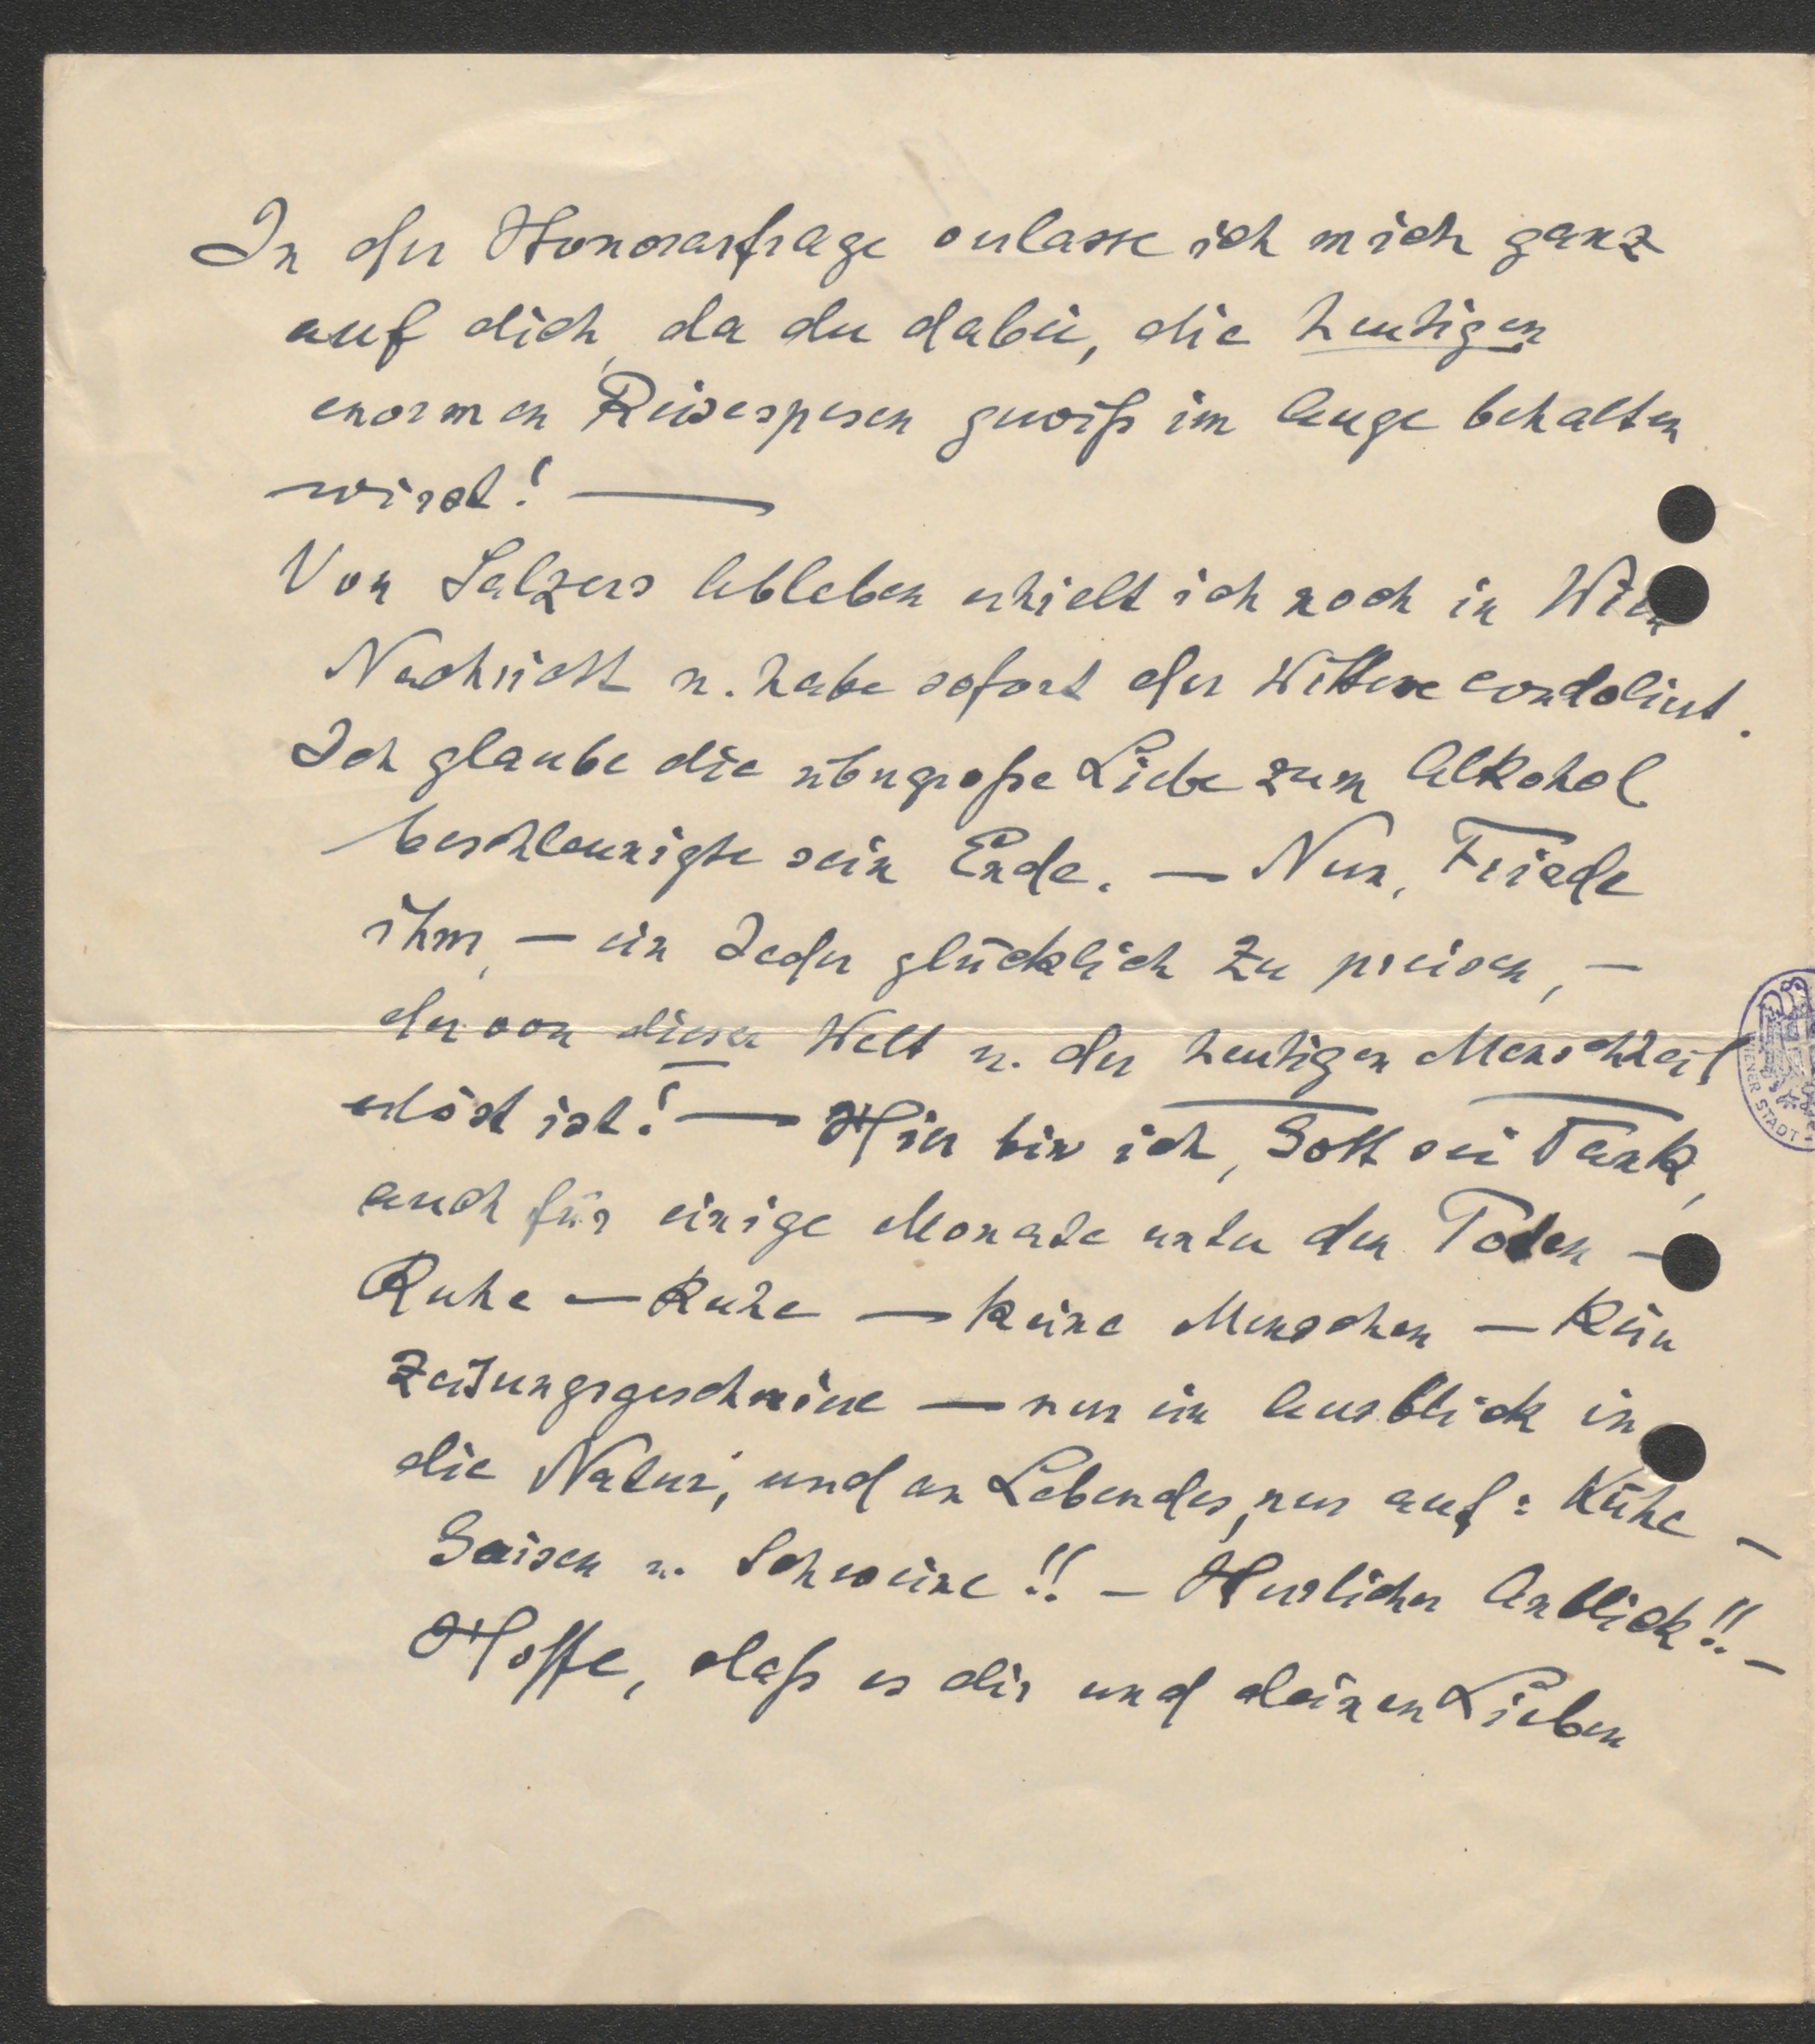 In der Honorarfrage verlasse ich mich ganz
auf dich, da du dabei, die heutigen
enormen Reisespesen gewiß im Auge behalten
wirst! —
Von Salzers Ableben erhielt ich noch in Wien
Nachricht u. habe sofort der Wittwe condoliert.
Ich glaube die übergroße Liebe zum Alkohol
beschleunigte sein Ende. — Nun, Friede
ihm, — ein Jeder glücklich zu preisen, —
der von dieser Welt u. der heutigen Menschheit
erlöst ist! — Hier bin ich, Gott sei Dank,
auch für einige Monate unter den Toten —
Ruhe — Ruhe — keine Menschen — Kein
Zeitungsgeschmiere — nur ein Ausblick in
die Natur, und an Lebendes, nur auf: Kühe —
Gaisen u. Schweine!! — Herrlicher Anblick!! —
Hoffe, daß es dir und deinen Lieben
WIENER STADT-